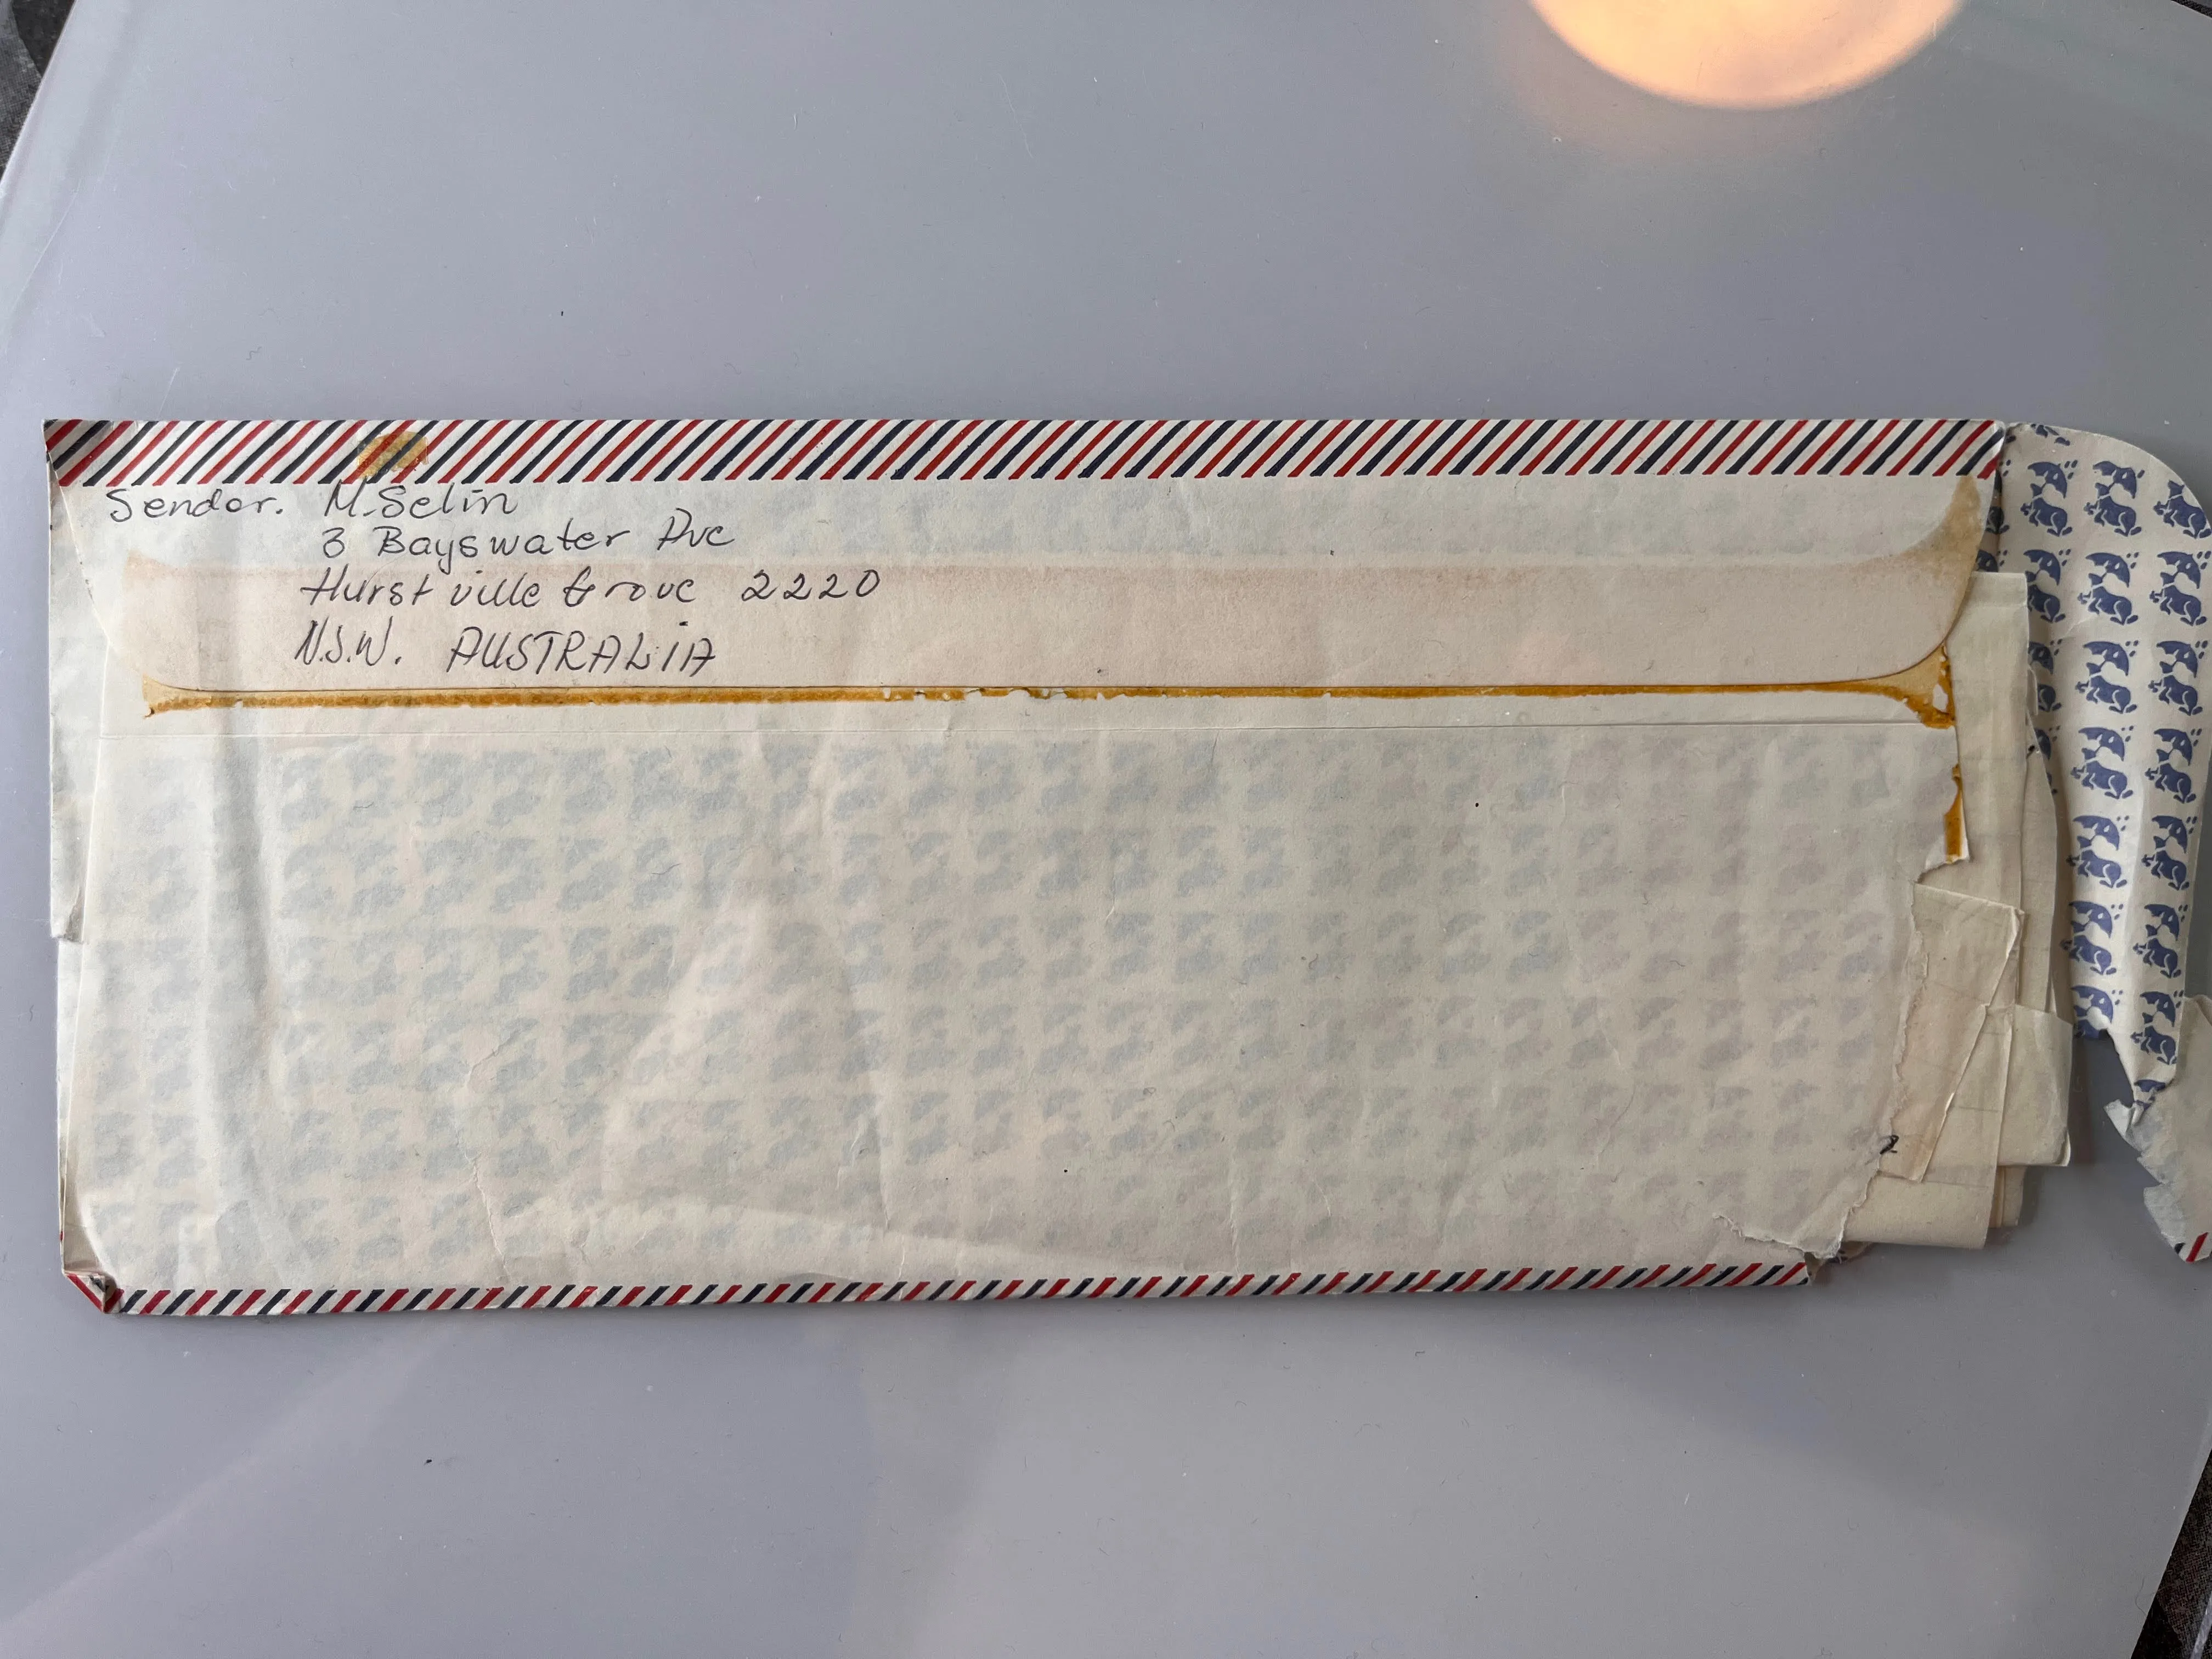 Sender. M. Selin
3 Bayswater Ave
Hurstville Grove 2220
N.S.W. AUSTRALIA
2